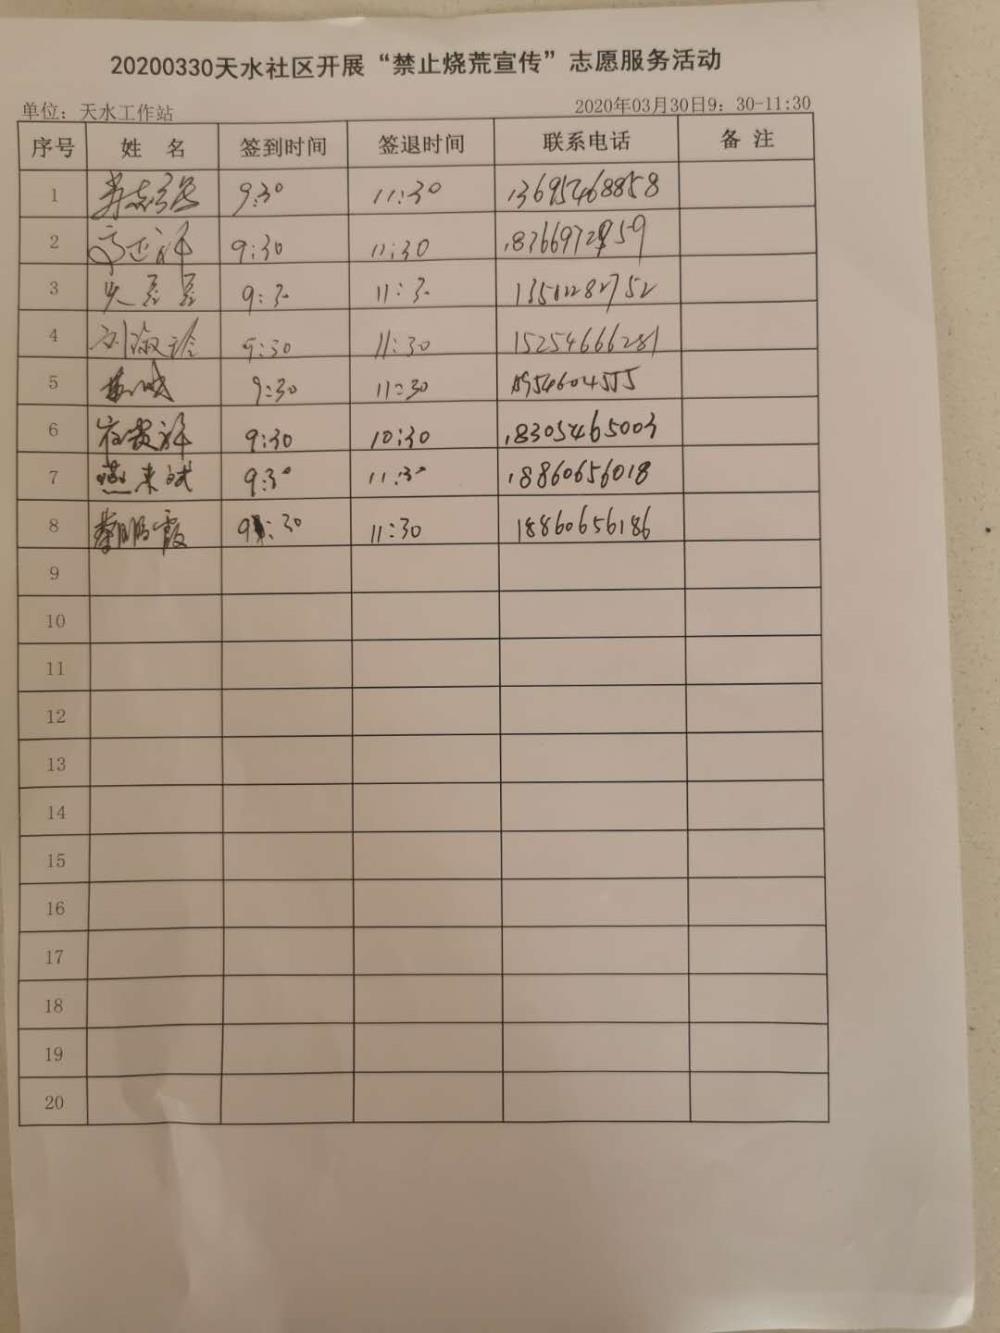 20200330天水社区开展“禁止烧荒宣传”志愿服务活动
单位：天水工作站 2020年03月30日9：30-11:30
序号 姓 名 签到时间 签退时间 联系电话 备 注
1 9:30 11:30 13695468858
2 9:30 11:30
3 9:30 11:30
4 刘淑玲 9:30 11:30 15254666281
5 9:30 11:30
6 9:30 10:30 18305465003
7 燕来斌 9:30 11:30 18860656018
8 秦鹏霞 9:30 11:30 18860656186
9
10
11
12
13
14
15
16
17
18
19
20